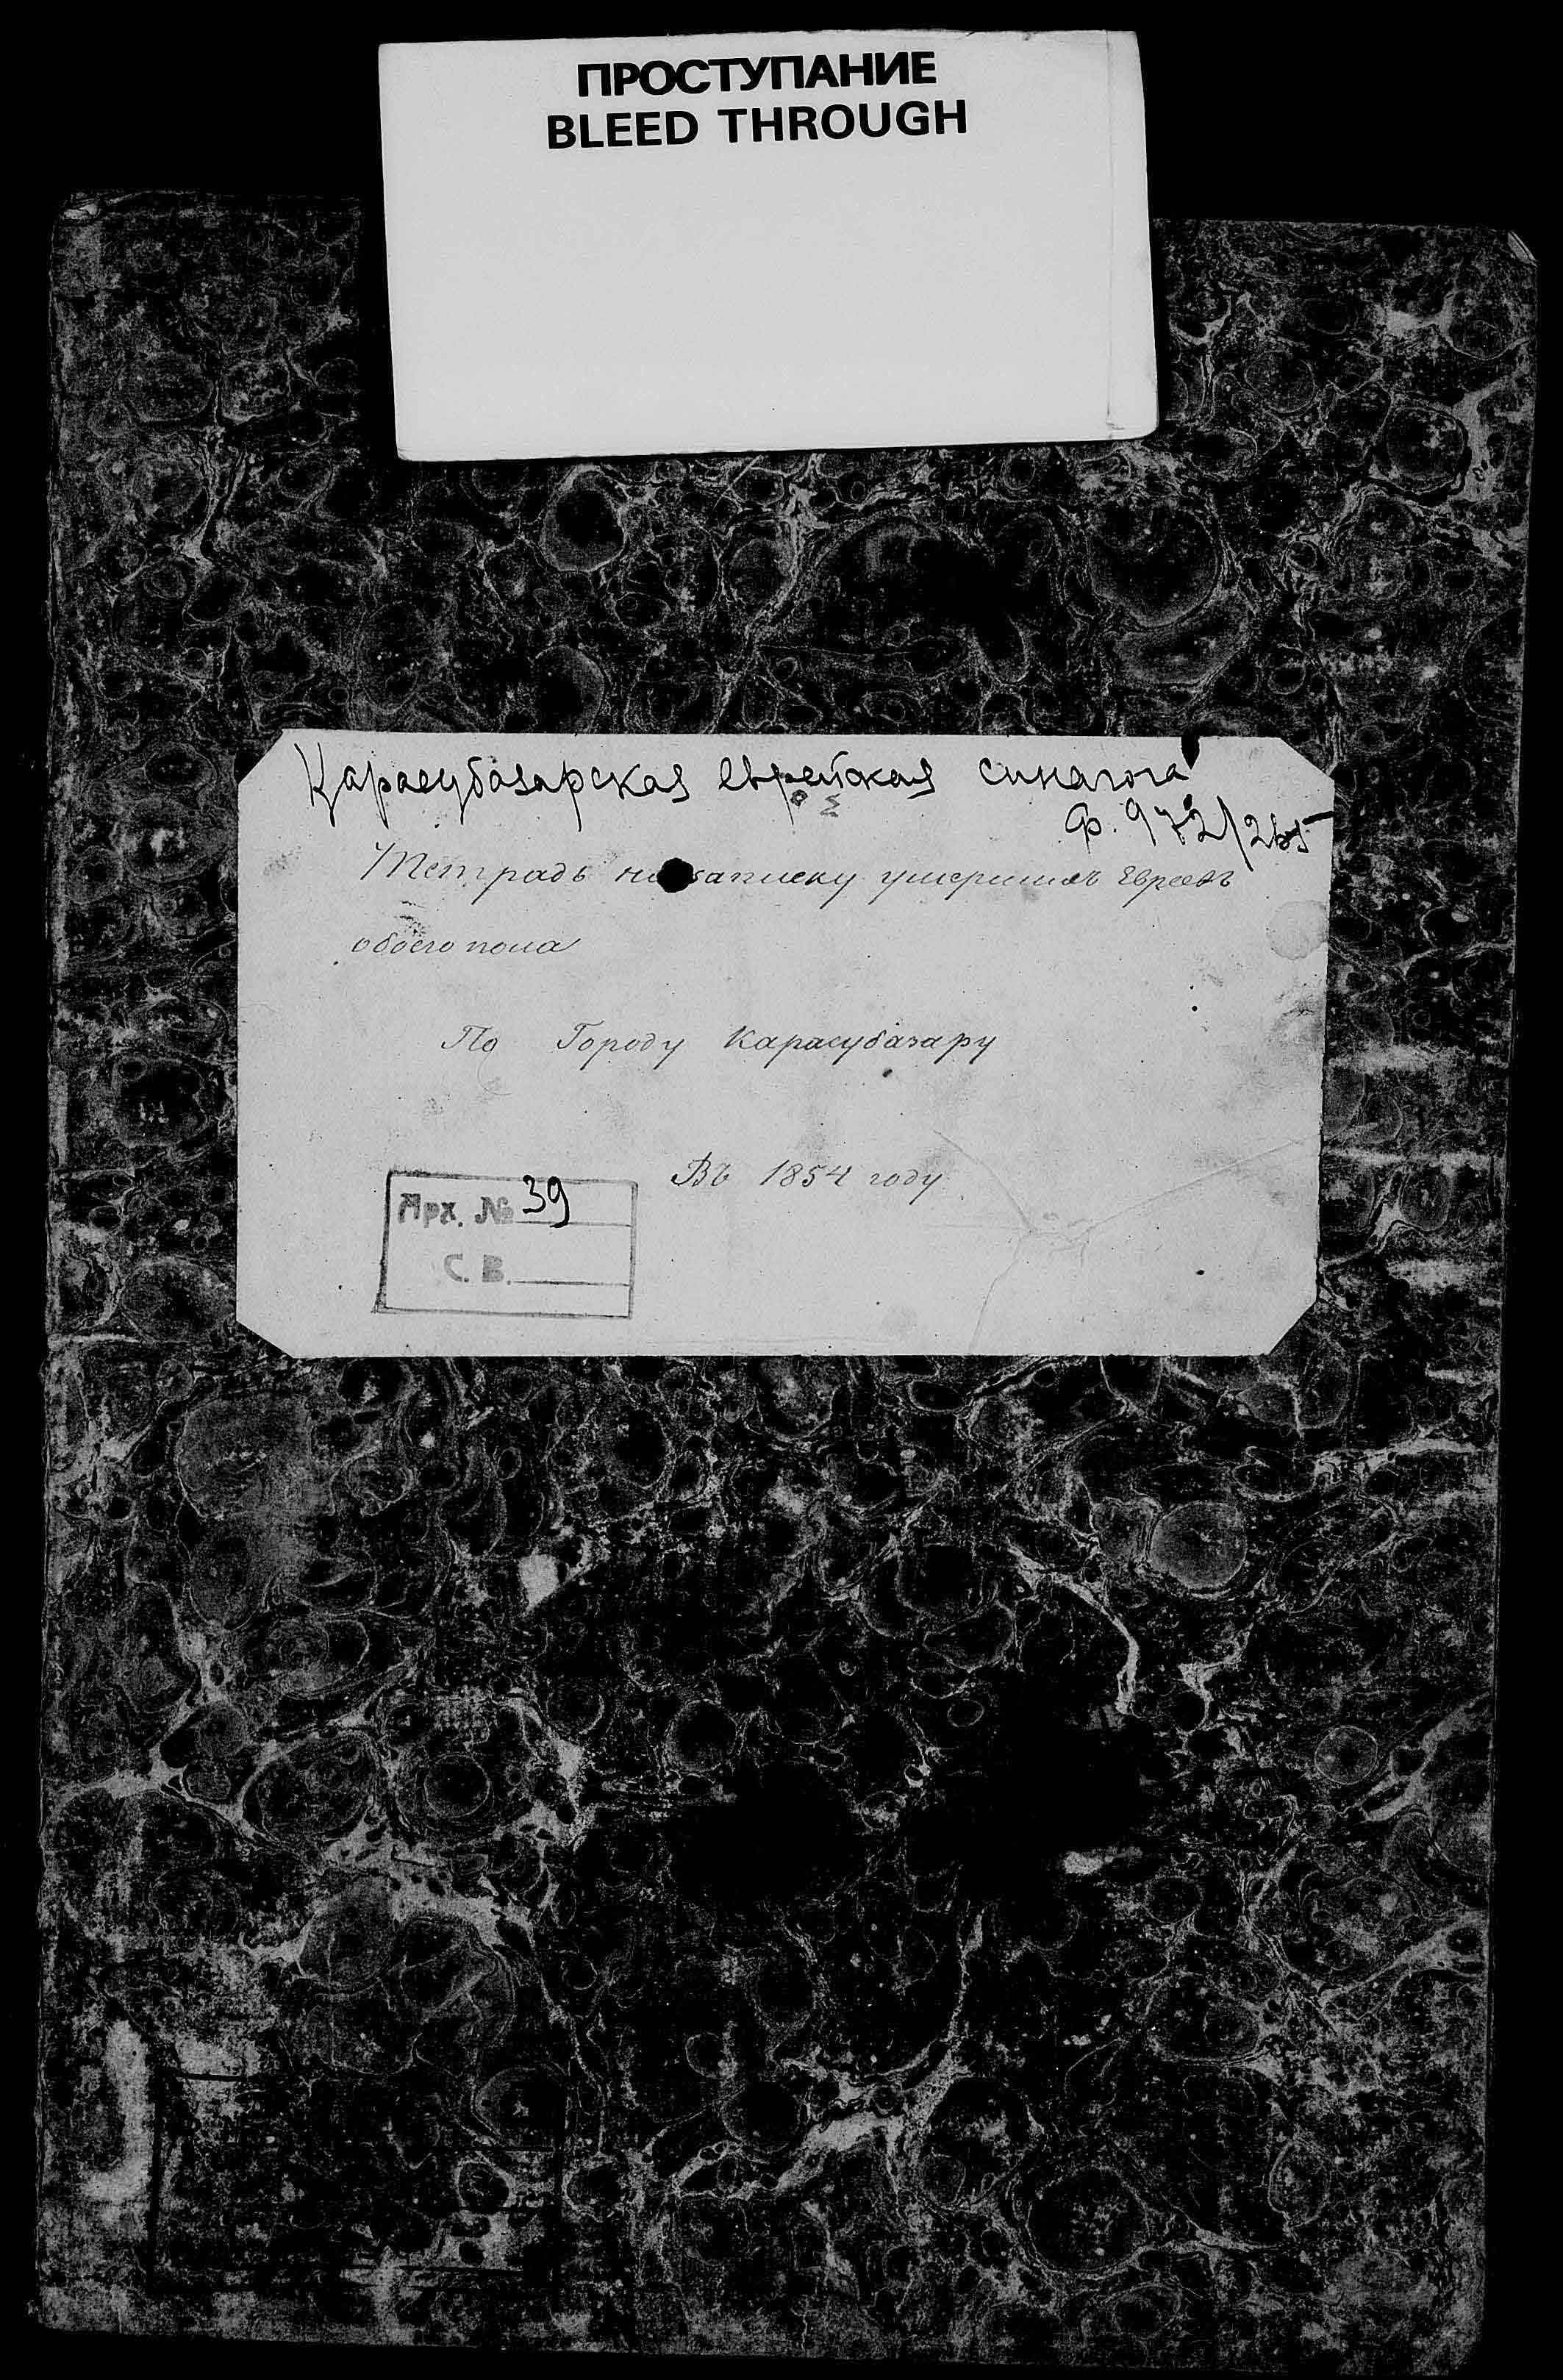 ПРОСТУПАНИЕ
BLEED THROUGH
Карасубазарская еврейская синагога
Ф. 972/
Тетрадь на записку умершихъ Евреевъ
обоего пола
По Городу Карасубазару
Въ 1854 году
Арх. № 39
С. В.